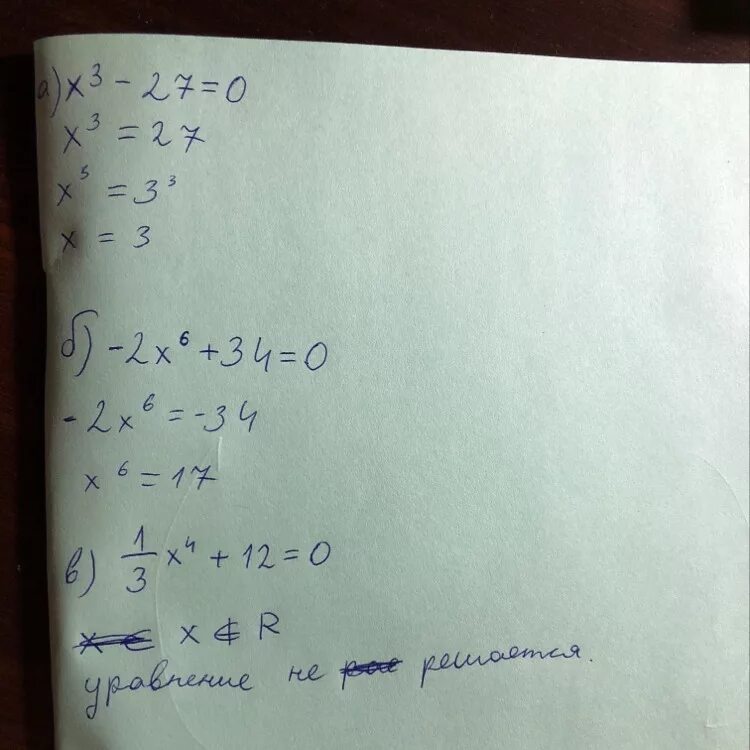 а) x³ - 27 = 0
x³ = 27
x³ = 3³
x = 3
б) -2x⁶ + 34 = 0
-2x⁶ = -34
x⁶ = 17
в) 1/3 x⁴ + 12 = 0
x ∉ R
уравнение не решается.